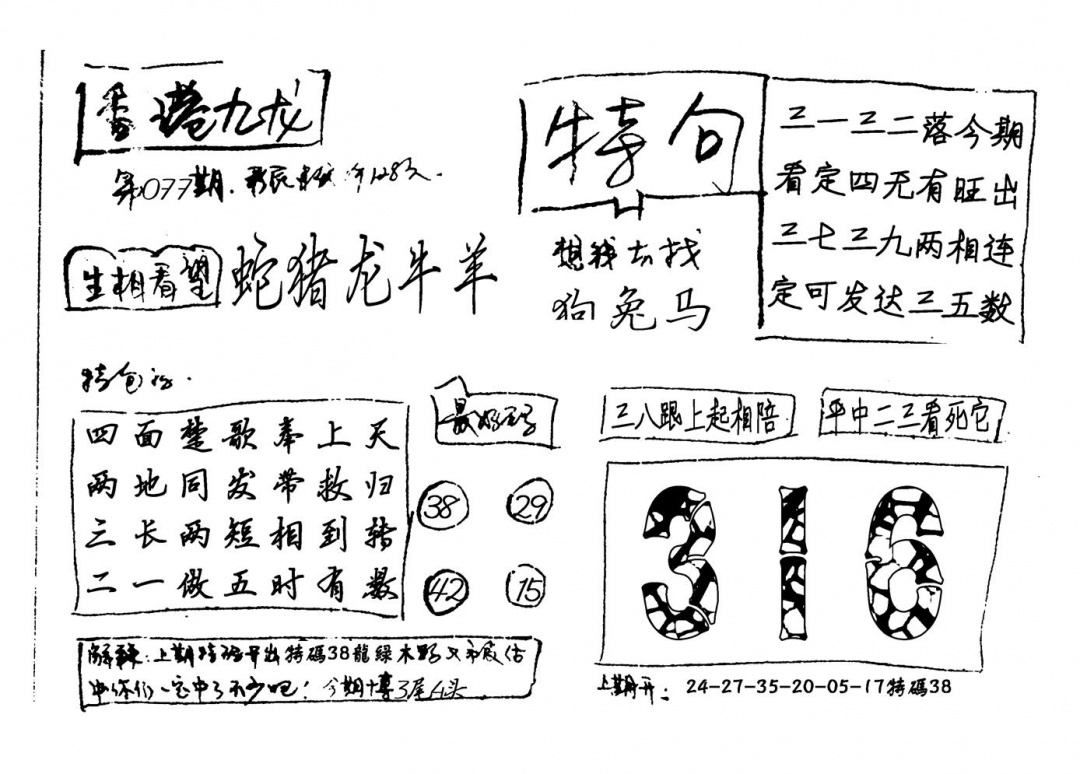 香港九龙
第077期.
生相看望
蛇猪龙牛羊
特句
想我去找
狗兔马
三一三二落今期
看定四无有旺出
三七三九两相连
定可发达三五数
特包
四面楚歌奉上天
两地同发带救归
三长两短相到转
二一做五时有数
38 29
42 15
三八跟上起相陪
平中二三看死它
316
上期开: 24-27-35-20-05-17特碼38
解释:上期 开出特碼38龍綠木野又
中你们一定中了不少吧! 今期博3尾4头